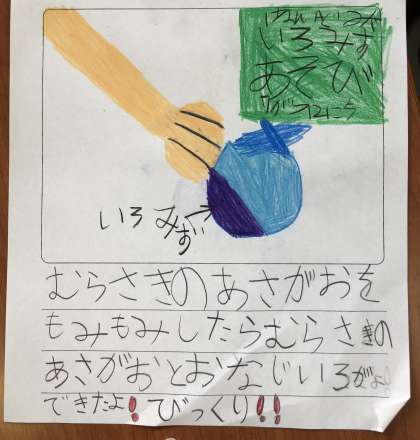 いろみず
あそび
いろみず
むらさきのあさがおを
もみもみしたらむらさきの
あさがおとおなじいろがよ
できたよ！びっくり！！